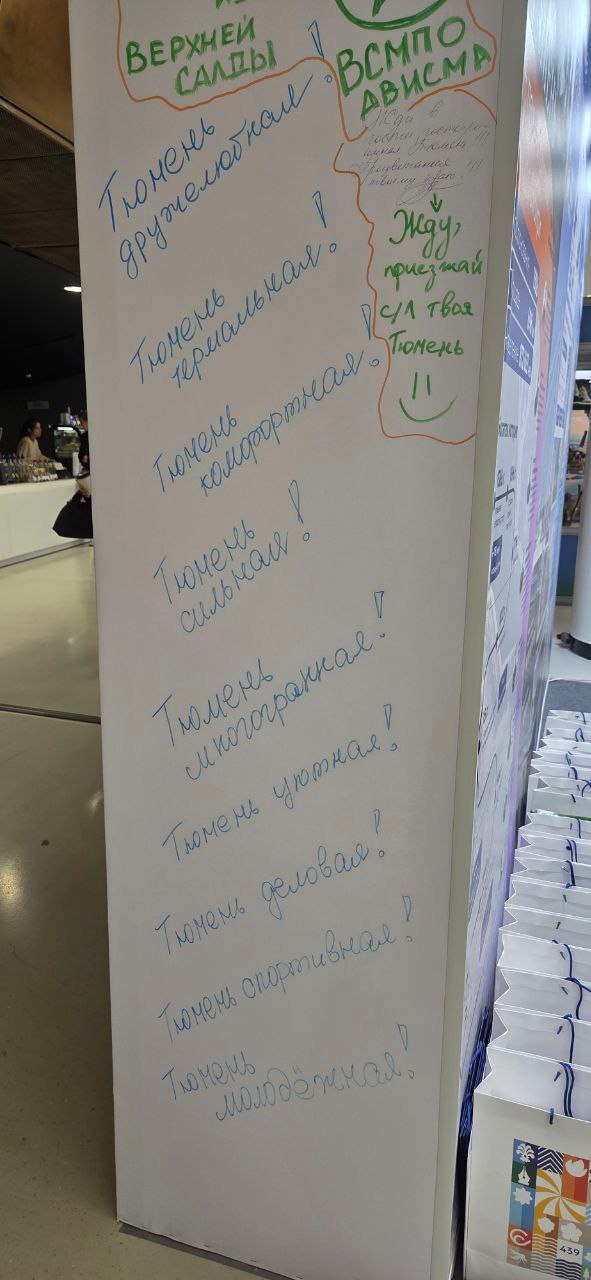 ВЕРХНЕЙ
САЛДЫ
ВСМПО
АВИСМА
Жди в
гости
Тюмень !!!
Процветания
твоему краю! !!!
Жду,
приезжай
с/л твоя
Тюмень
Тюмень
дружелюбная!
Тюмень
термальная!
Тюмень
комфортная!
Тюмень
сильная!
Тюмень
многогранная!
Тюмень уютная!
Тюмень деловая!
Тюмень спортивная!
Тюмень
молодёжная!
439